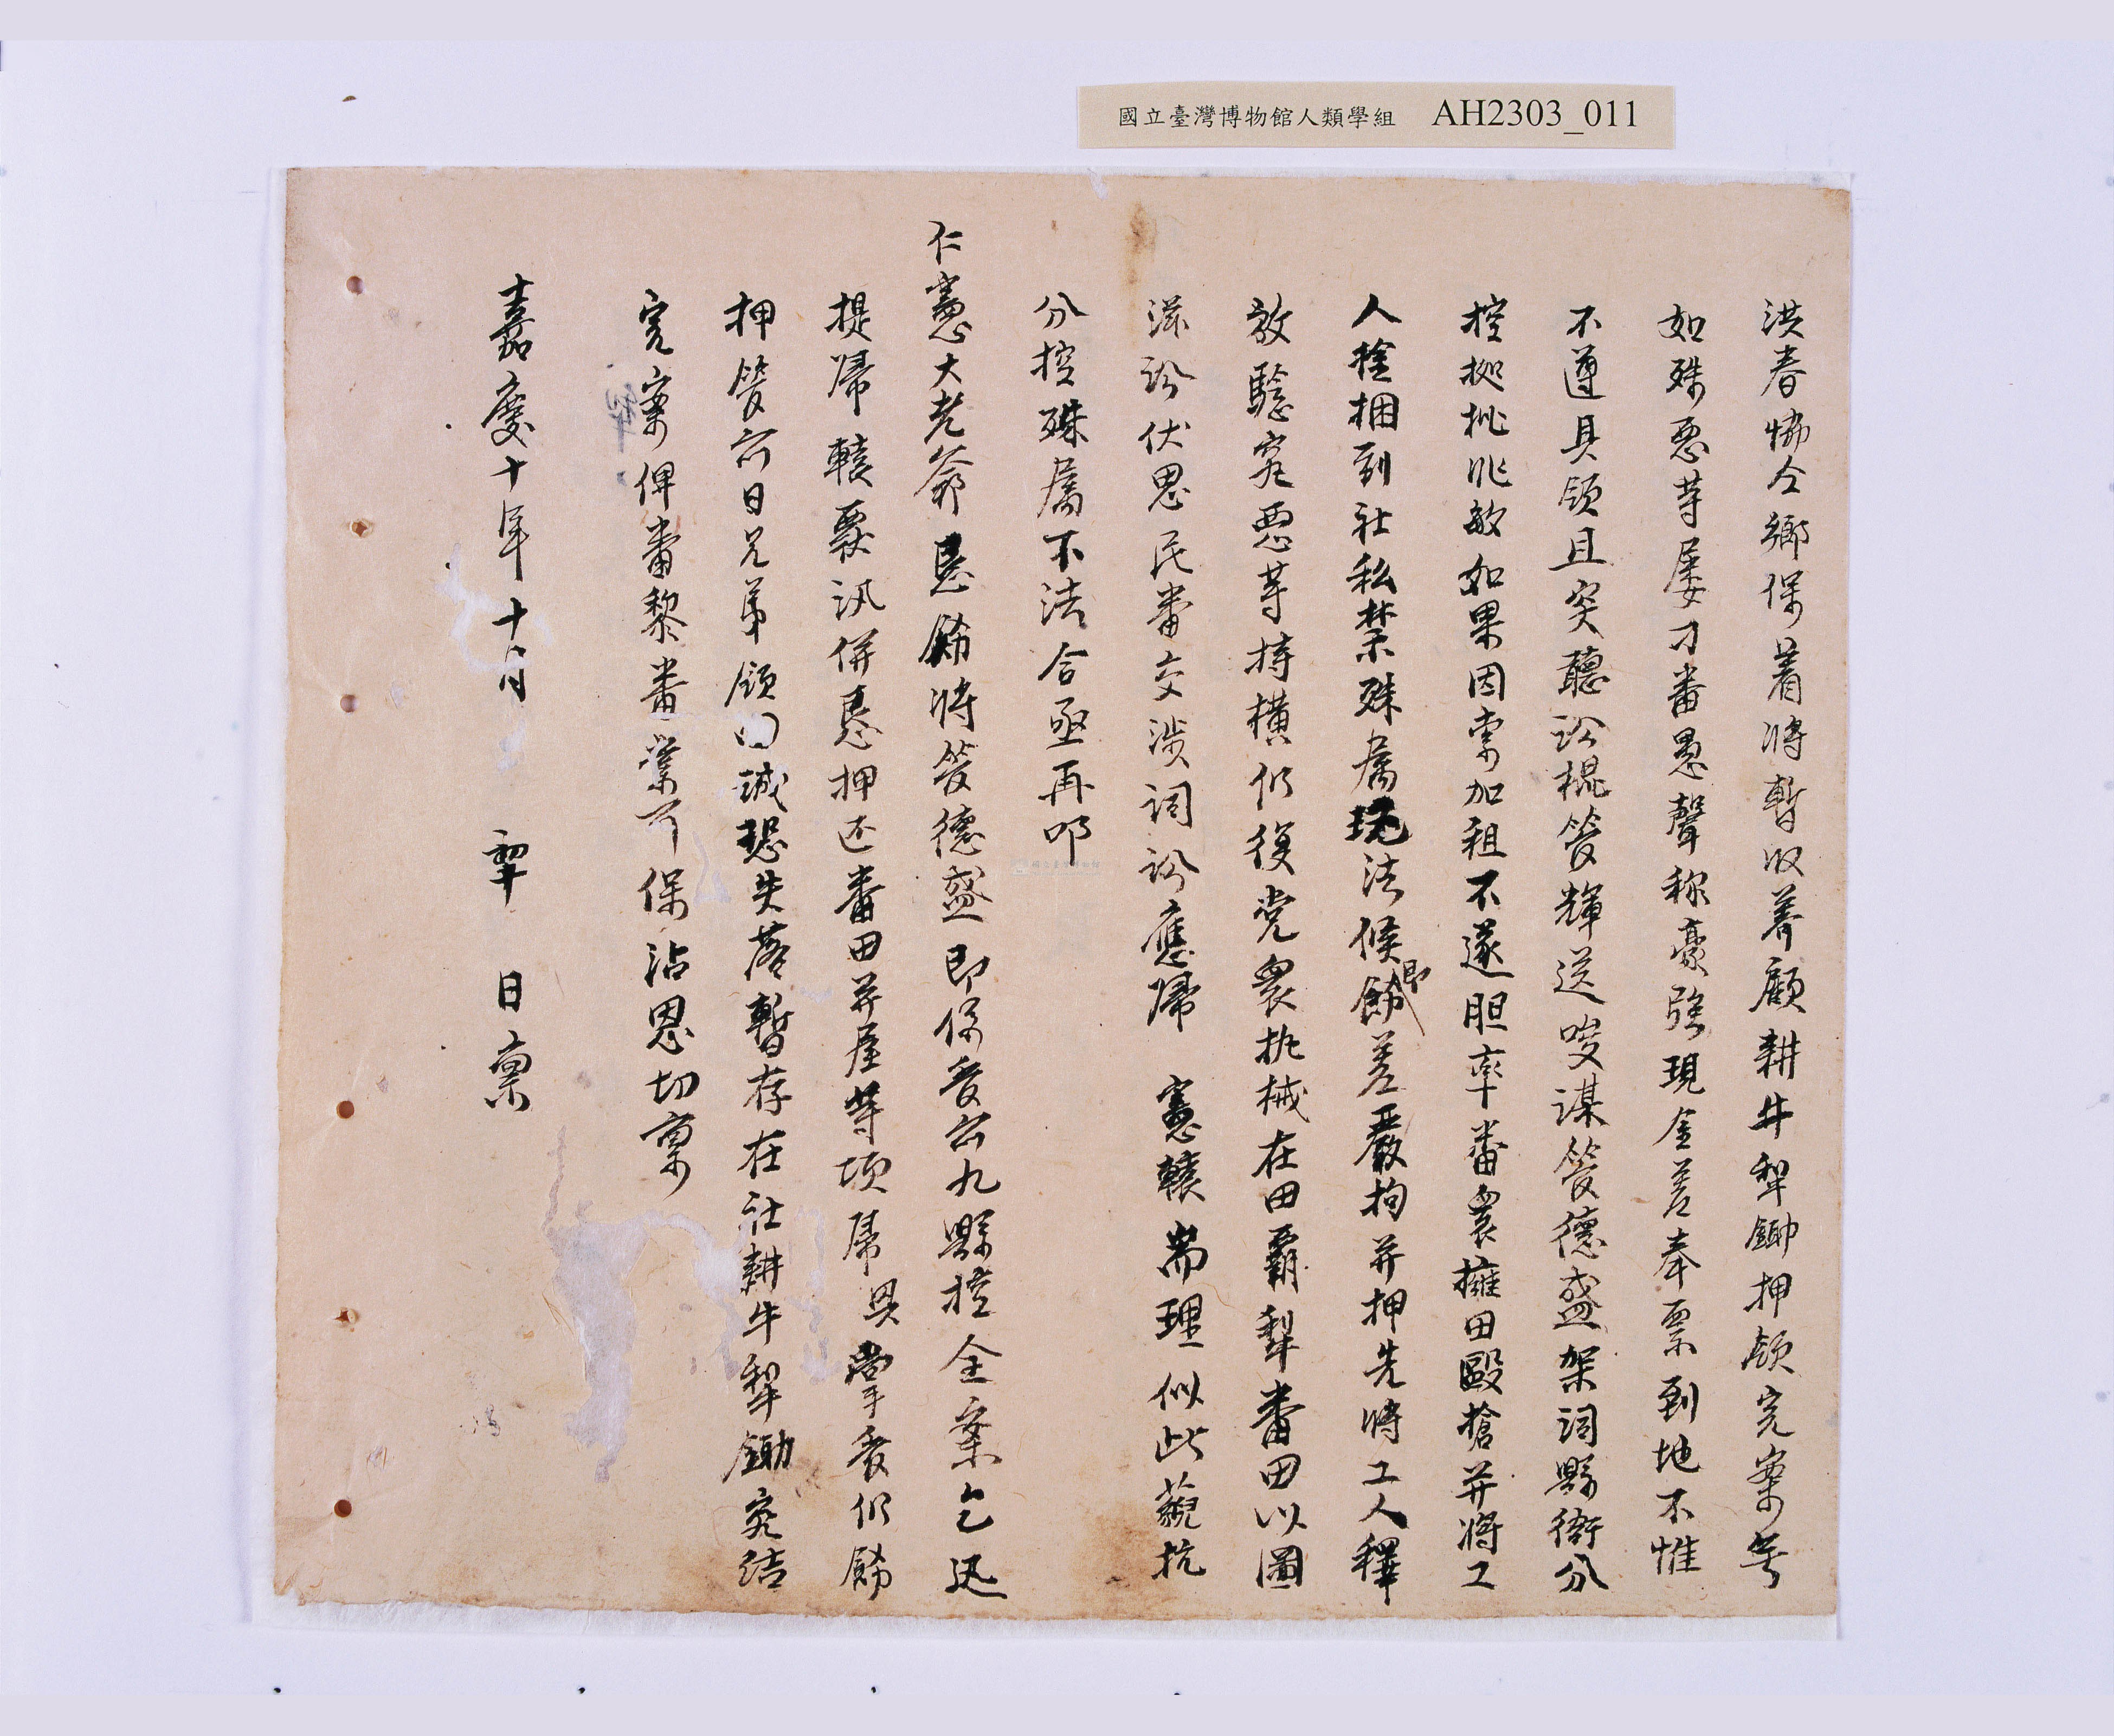 國立臺灣博物館人類學組 AH2303_011
洪春協仝鄉保着將暫收養顧耕牛犁鋤押領完案等
如殊惡等屢刁番愚聲称豪強現仝差奉票到地不惟
不遵具領且突聽訟棍管輝送唆謀管德盛架詞縣衙分
控拠批非敏如果因索加租不遂胆率番衆擁田毆搶并將工
人擒捆到社私禁殊屬玩法候即飭差嚴拘并押先將工人釋
放騐究惡等持橫仍復党衆执械在田霸犁番田以圖
滋訟伏思民番交涉詞訟應歸 憲轅耑理似此藐抗
分控殊屬不法合亟再叩
仁憲大老爺恩飭將管德盛即保爰台九縣控全案乞迅
提歸轅覆訊併懇押还番田并屋等項歸 掌爰仍飭
押管台日兄弟領回誠恐失落暫存在社耕牛犁鋤完結
完案俾番黎番業可保沾恩切稟
嘉慶十年十月 日稟